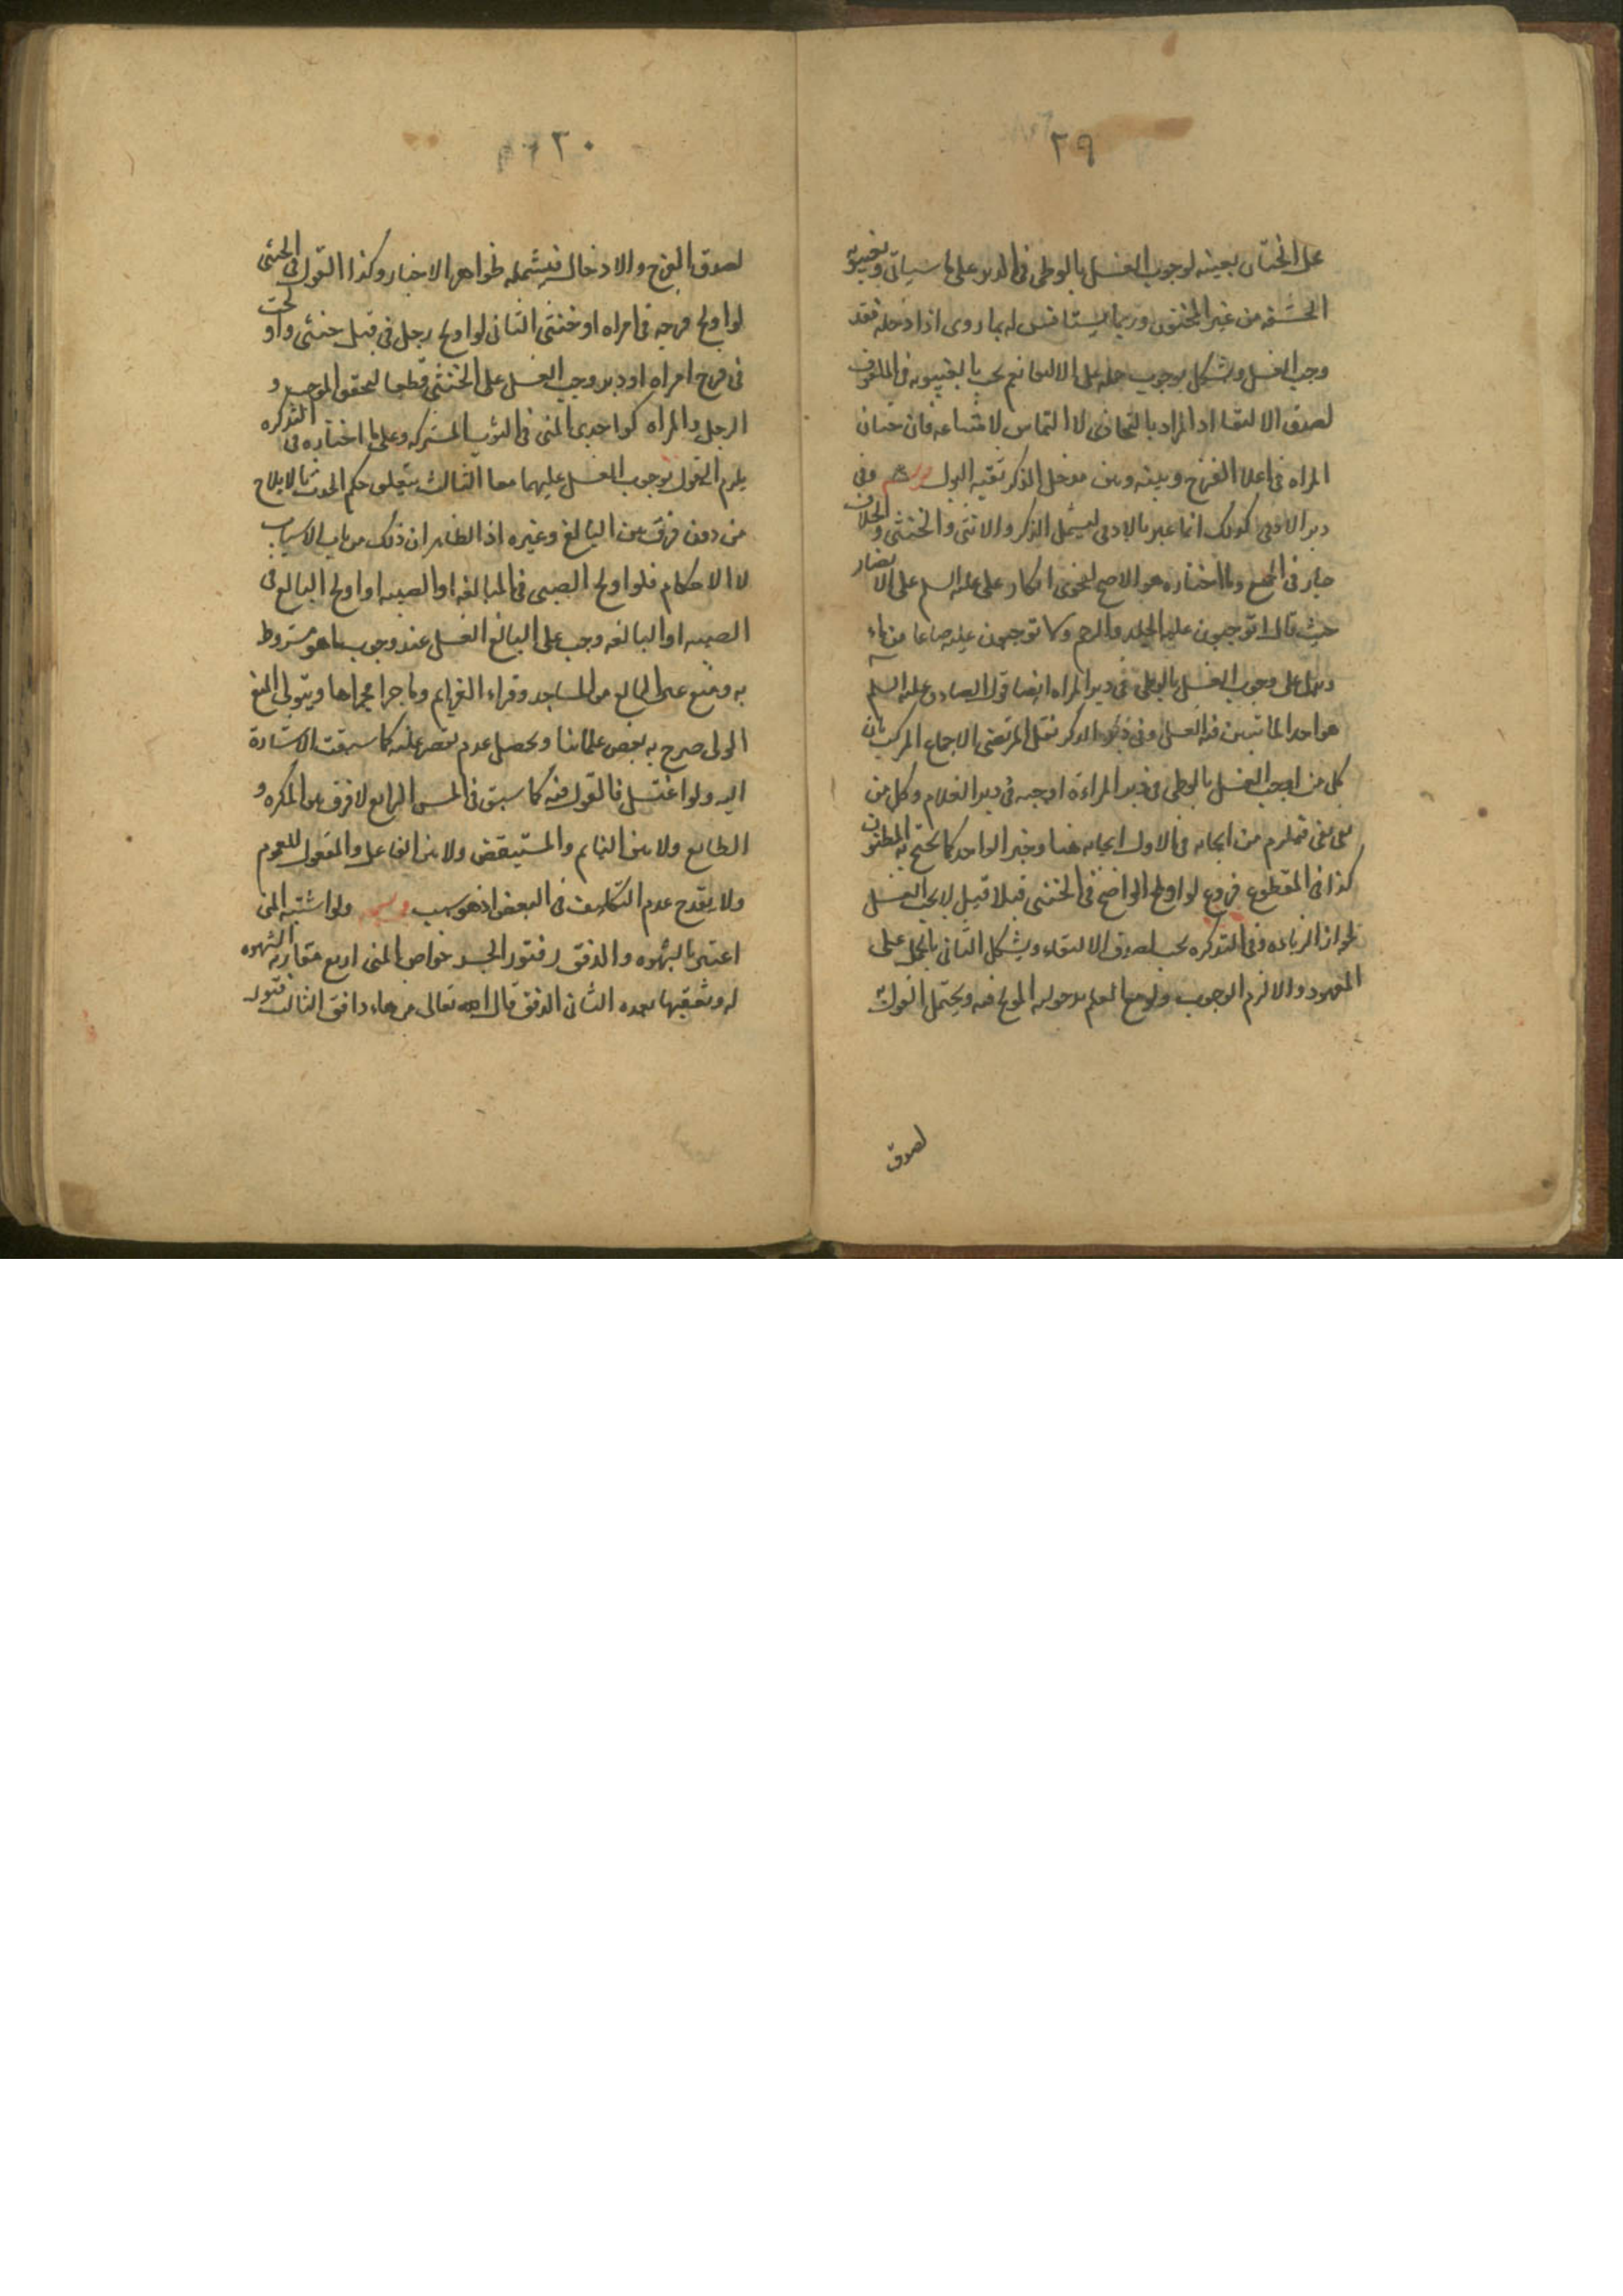 ٢٩
على الختان بعينه لوجوب الغسل بالوطى فى الدبر على ما سياتى وبغيبوبه
الحشفه من غير المختون وربما يستانس له بما روى اذا ادخله فقد
وجب الغسل ويشكل بوجوب حمله على الالتقا نعم يجب بالغيبوبه فى الملفوف
لصدق الالتقا اذ المراد به التحاذى لا التماس لامتناعه فان ختان
المراه فى اعلا الفرج وبينه وبين مدخل الذكر ثقبه البول وفى
دبر الادمى كذلك انما عبر بالادمى ليشمل الذكر والانثى والخنثى والخلاف
جار فى الجميع وما اختاره هو الاصح لفحوى انكار على عليه السلم على الانصار
حيث قال اتوجبون عليه الجلد والرجم ولا توجبون عليه صاعا من ماء
ويدل على وجوب الغسل بالوطى فى دبر المراه ايضا قول الصادق عليه السلم
هو احد الماتيين فيه الغسل وفى دبر الذكر نقل المرتضى الاجماع المركب بان
كل من اوجب الغسل بالوطى فى دبر المراءة اوجبه فى دبر الغلام وكل من
نفى نفى فيلزم من ايجابه فى الاول ايجابه هنا وخبر الواحد كما يحتج به المظنون
كذا فى المقطوع فروع لو اولج الواضح فى الخنثى قبلا قيل لا يجب الغسل
لجواز الزياده وفى التذكره يجب لصدق الالتقاء ويشكل الثانى بالحمل على
المعهود والا لزم الوجوب ولو مع العلم بدخوله المولج فيه ويحتمل القول به
لصدق
٣٠
لصدق الفرج والادخال فيشمله ظواهر الاخبار وكذا القول فى الخنثى
لو اولج فرجه فى امراه او خنثى الثانى لو اولج رجل فى قبل خنثى واولجت
فى فرج امراه او دبر وجب الغسل على الخنثى قطعا لتحقق الموجب و
الرجل والمراه كواجدى المنى فى الثوب المشترك وعلى ما اختاره فى التذكره
يلزم القول بوجوب الغسل عليهما معا الثالث يتعلق حكم الحدث بالايلاج
من دون فرق بين البالغ وغيره اذ الظاهر ان ذلك من باب الاسباب
لا الاحكام فلو اولج الصبى فى البالغه او الصبيه او اولج البالغ فى
الصبيه او البالغه وجب على البالغ الغسل عند وجوب ما هو مشروط
به ومنع غير البالغ من المساجد وقراء العزايم وما جرا مجراها ويتولى المنع
الولى صرح به بعض علمائنا ويحصل عدم كما سبقت الاشارة
اليه ولو اغتسل فالقول فيه كما سبق فى المس الرابع لا فرق بين المكره و
الطايع ولا بين النايم والمستيقض ولا بين الفاعل والمفعول للعموم
ولا يقدح عدم التكليف فى البعض اذ هو سبب ولو اشتبه المنى
اعتبر بالشهوه والدفق وفتور الجسد خواص المنى اربع مقارنه الشهوه
له وتعقبها بعده الثانى الدفق قال الله تعالى من ماء دافق الثالث فتور